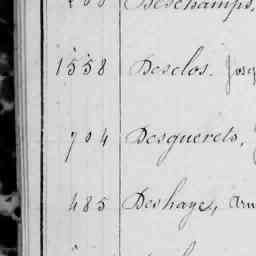 Deschamps,
1558 Desclos. Jose
704 Desguerets,
485 Deshaye, Arm